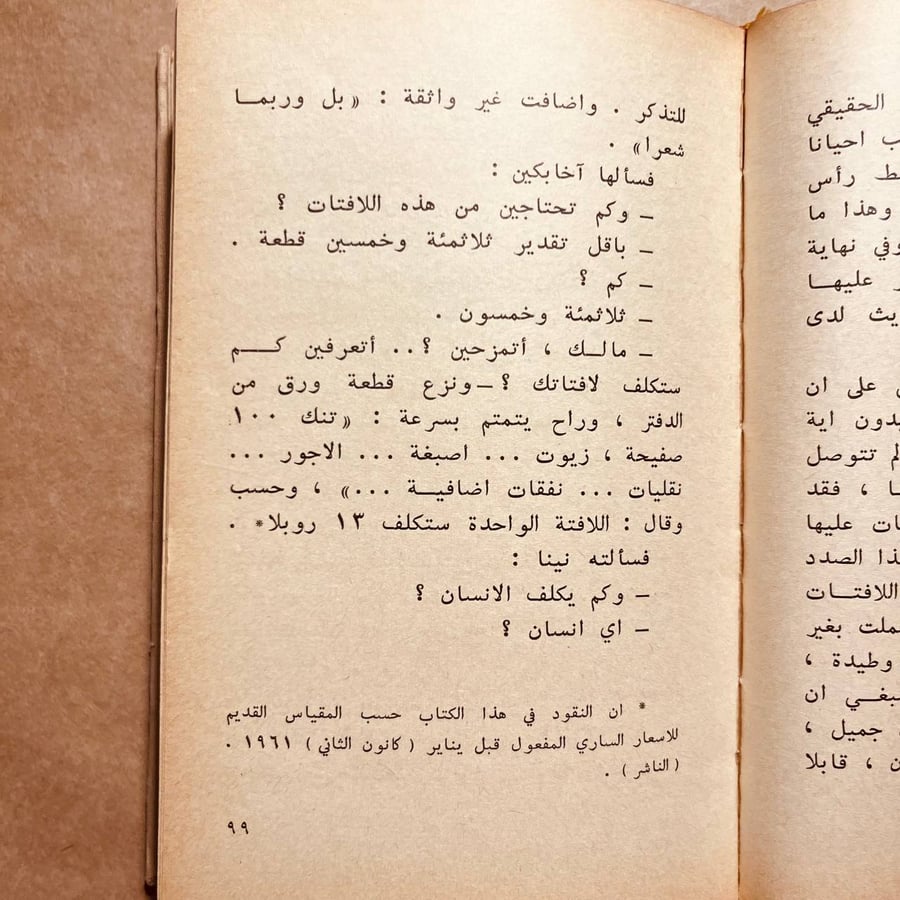 للتذكر . واضافت غير واثقة : «بل وربمـا
شعرا» .
فسألها آخابكين :
ـ وكم تحتاجين من هذه اللافتات ؟
ـ باقل تقدير ثلاثمئة وخمسين قطعة .
ـ كم ؟
ـ ثلاثمئة وخمسون .
ـ مالـك ، أتمزحين ؟.. أتعرفين كـــم
ستكلف لافتاتك ؟ ـ ونزع قطعة ورق من
الدفتر ، وراح يتمتم بسرعة : «تنك ١٠٠
صفيحة ، زيوت ... اصبغة ... الاجور ...
نقليات ... نفقات اضافيـة ...» ، وحسب
وقال : اللافتة الواحدة ستكلف ١٣ روبلا* .
فسألته نينا :
ـ وكم يكلف الانسان ؟
ـ اي انسان ؟
* ان النقود في هذا الكتاب حسب المقياس القديم
للاسعار الساري المفعول قبل يناير ( كانون الثاني ) ١٩٦١ .
( الناشر ) .
٩٩
الحقيقي
احيانا
رأس
وهذا ما
وفي نهاية
عليهـا
لدى
على ان
بدون اية
تتوصل
، فقد
عليها
الصدد
اللافتـات
بغير
وطيدة ،
ان
جميل ،
، قابلا